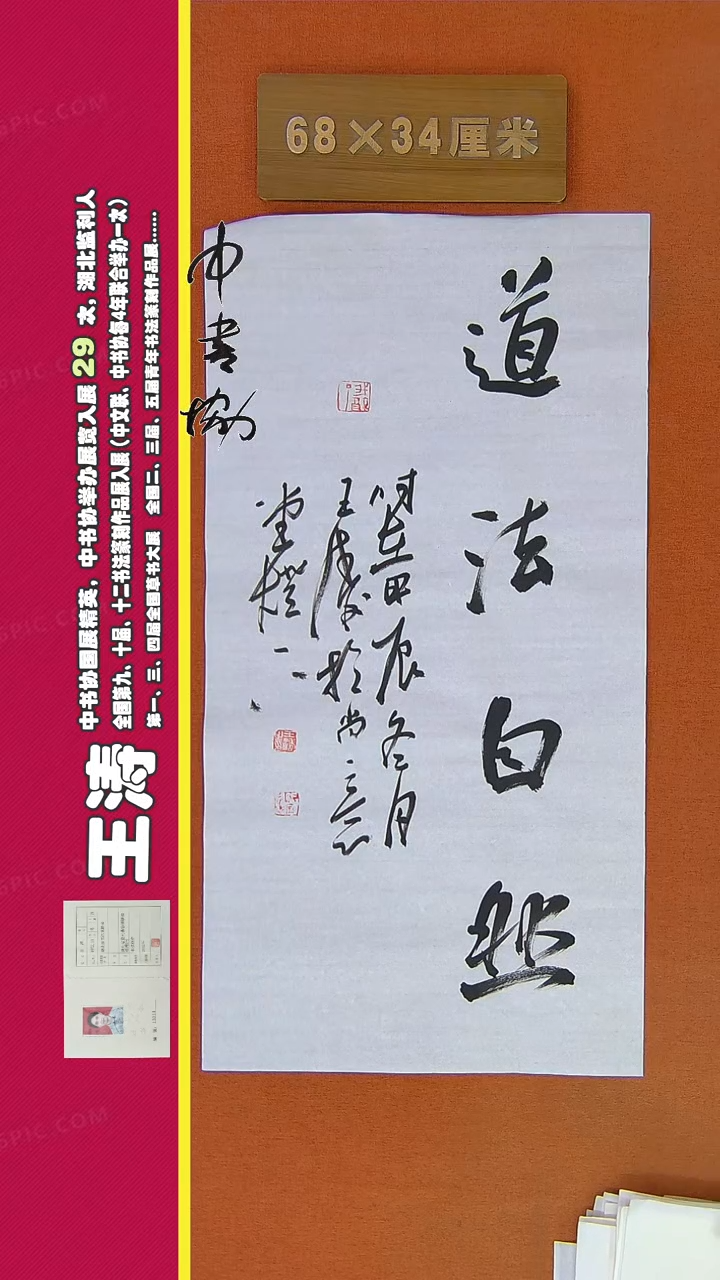 68×34厘米
中书协
道法自然
时在甲辰冬月
王涛书于尚
堂
王涛
中书协国展精英,中书协举办展赛入展 29 次,湖北监利人
全国第九、十届、十二书法篆刻作品展入展(中文联、中书协每4年联合举办一次)
第一、三、四届全国草书大展 全国二、三届、五届青年书法篆刻作品展......